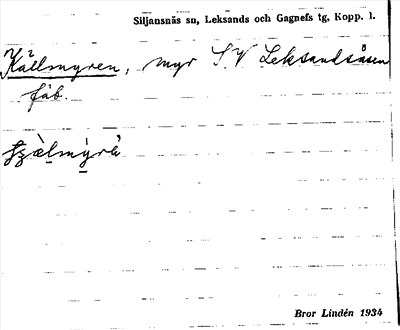 Siljansnäs sn, Leksands och Gagnefs tg, Kopp. l.
Källmyren, myr S.V Leksandsåsen
fäb.
Bror Lindén 1934